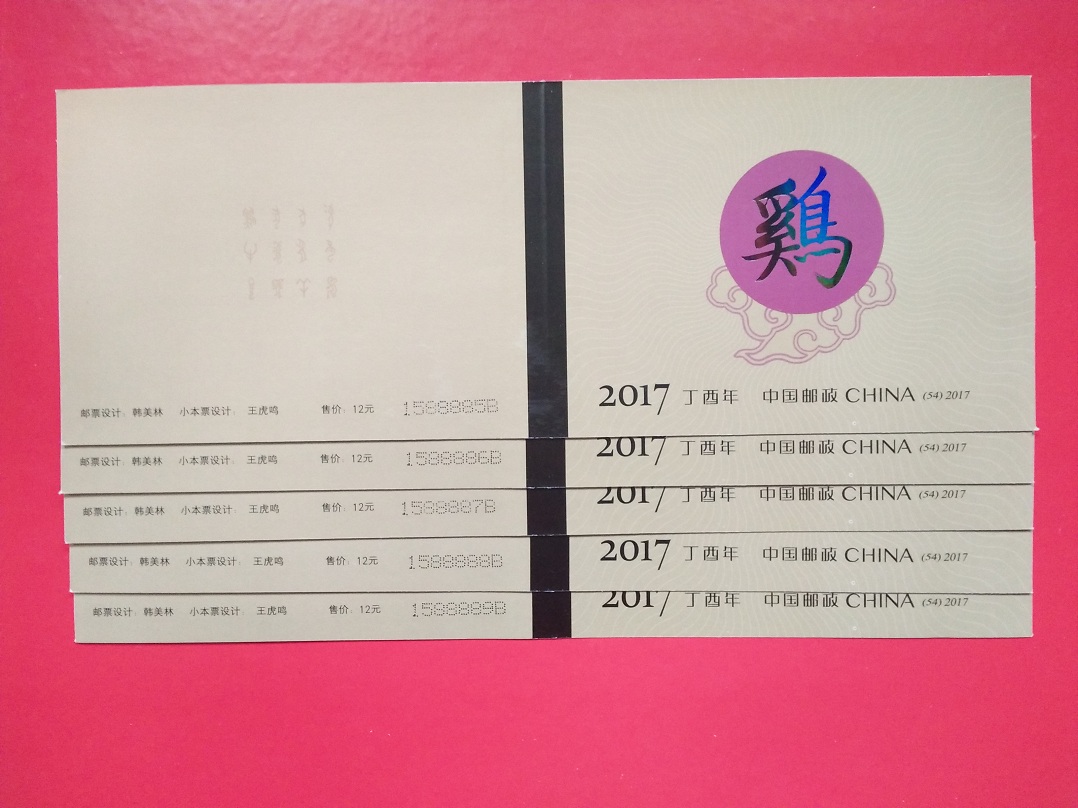 鷄
邮票设计：韩美林 小本票设计： 王虎鸣 售价：12元 1588885B
2017 丁酉年 中国邮政 CHINA (54) 2017
邮票设计：韩美林 小本票设计： 王虎鸣 售价：12元 1588886B
2017 丁酉年 中国邮政 CHINA (54) 2017
邮票设计：韩美林 小本票设计： 王虎鸣 售价：12元 1588887B
2017 丁酉年 中国邮政 CHINA (54) 2017
邮票设计：韩美林 小本票设计： 王虎鸣 售价：12元 1588888B
2017 丁酉年 中国邮政 CHINA (54) 2017
邮票设计：韩美林 小本票设计： 王虎鸣 售价：12元 1588889B
2017 丁酉年 中国邮政 CHINA (54) 2017